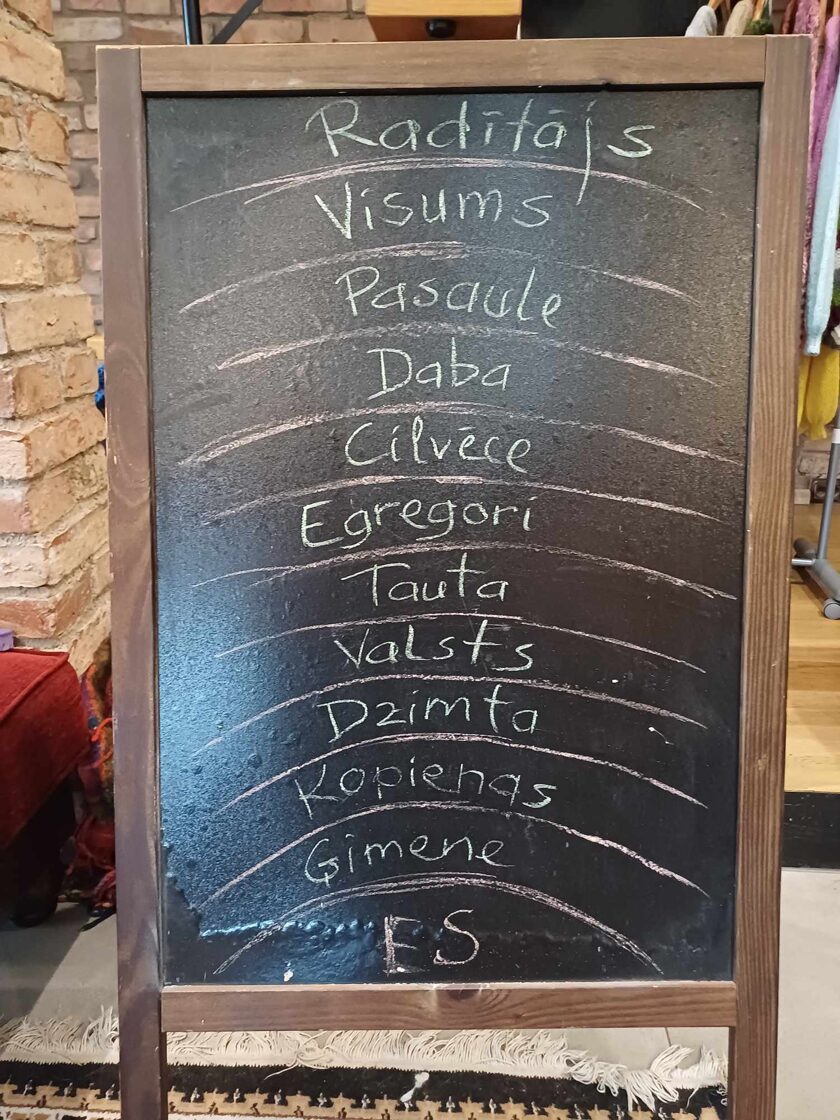 Radītājs
Visums
Pasaule
Daba
Cilvēce
Egregori
Tauta
Valsts
Dzimta
Kopienas
Ģimene
ES